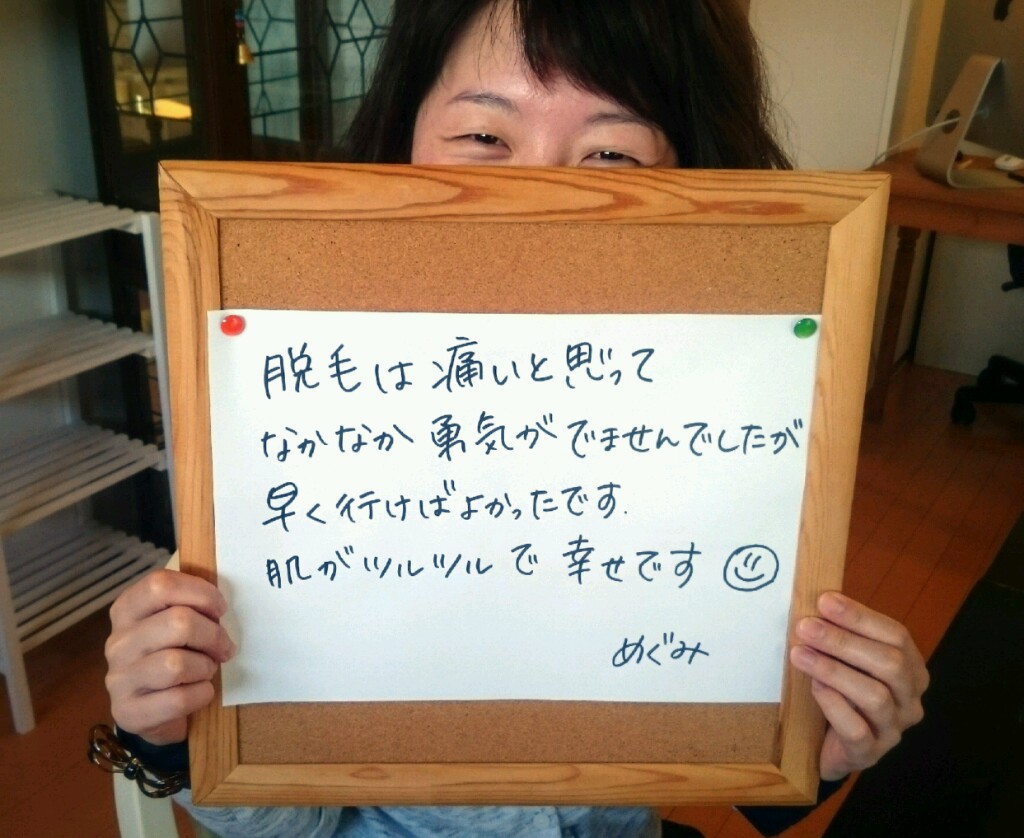 脱毛は痛いと思って
なかなか勇気がでませんでしたが
早く行けばよかったです.
肌がツルツルで幸せです
めぐみ